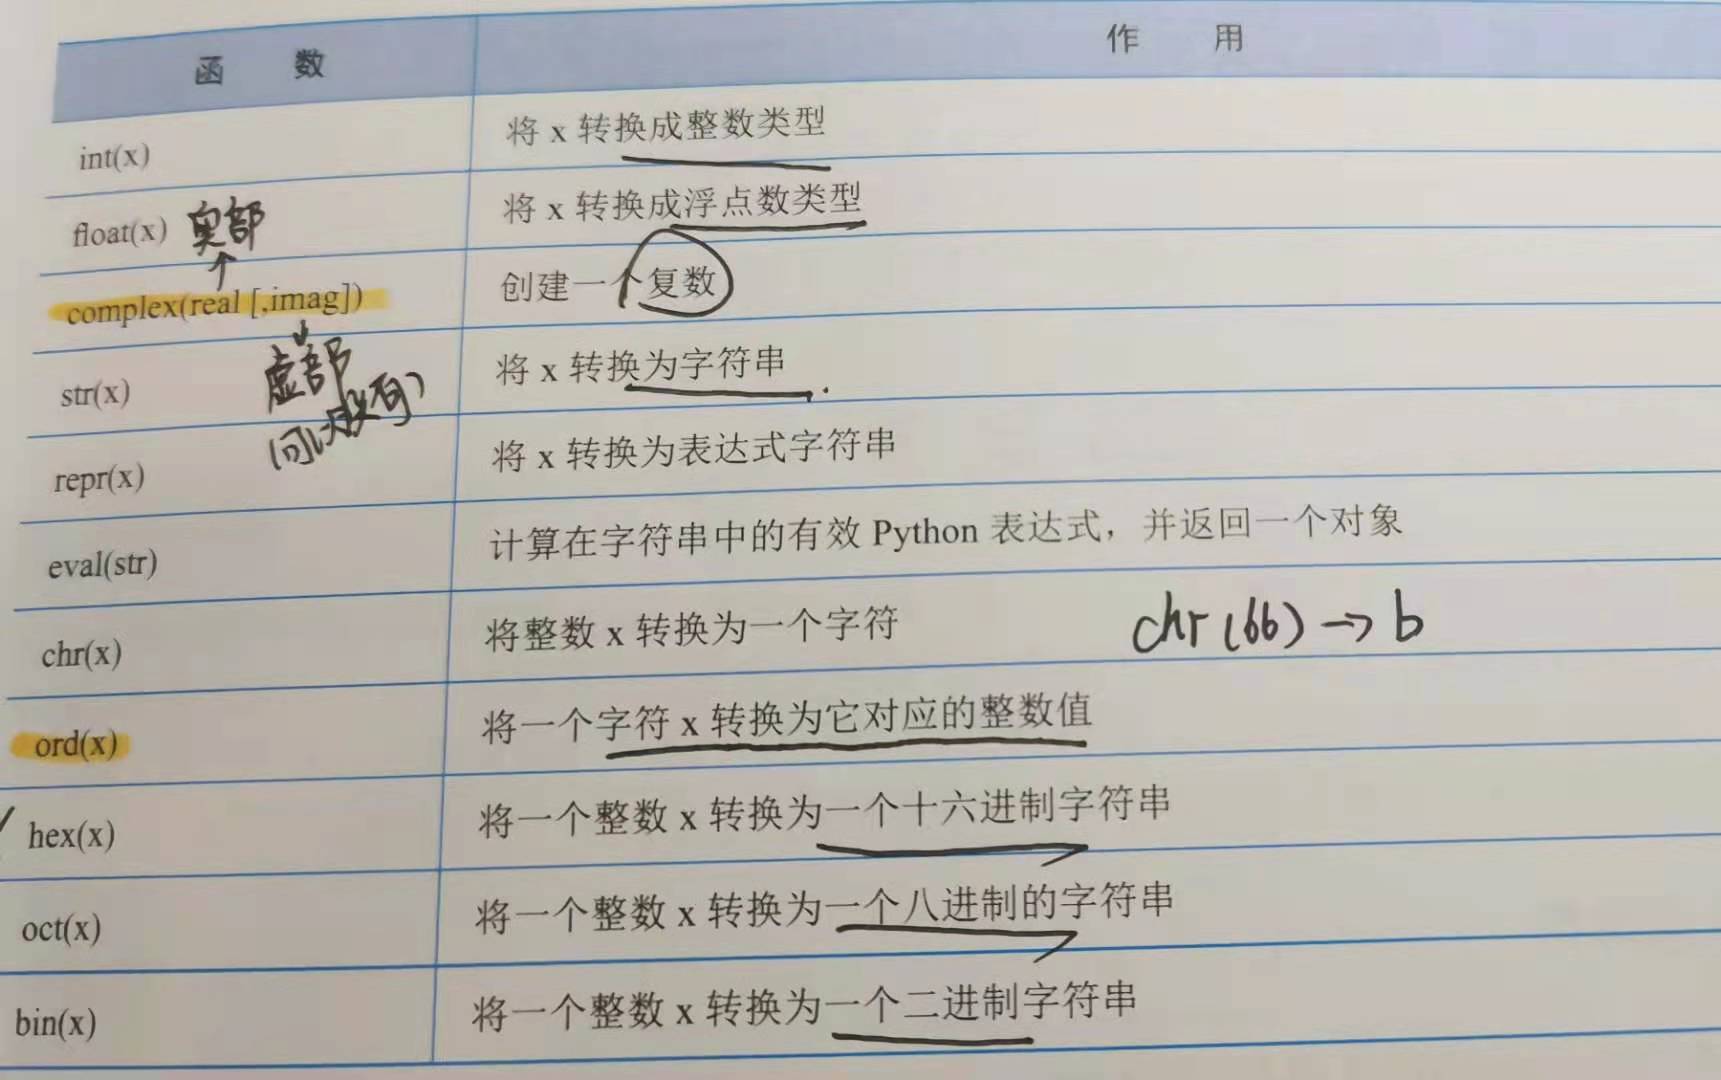 函 数 作 用
int(x) 将 x 转换成整数类型
float(x) 实部 将 x 转换成浮点数类型
complex(real [,imag]) 创建一个复数
虚部
(可以没有)
str(x) 将 x 转换为字符串
repr(x) 将 x 转换为表达式字符串
eval(str) 计算在字符串中的有效 Python 表达式，并返回一个对象
chr(x) 将整数 x 转换为一个字符 chr(66)→b
ord(x) 将一个字符 x 转换为它对应的整数值
hex(x) 将一个整数 x 转换为一个十六进制字符串
oct(x) 将一个整数 x 转换为一个八进制的字符串
bin(x) 将一个整数 x 转换为一个二进制字符串